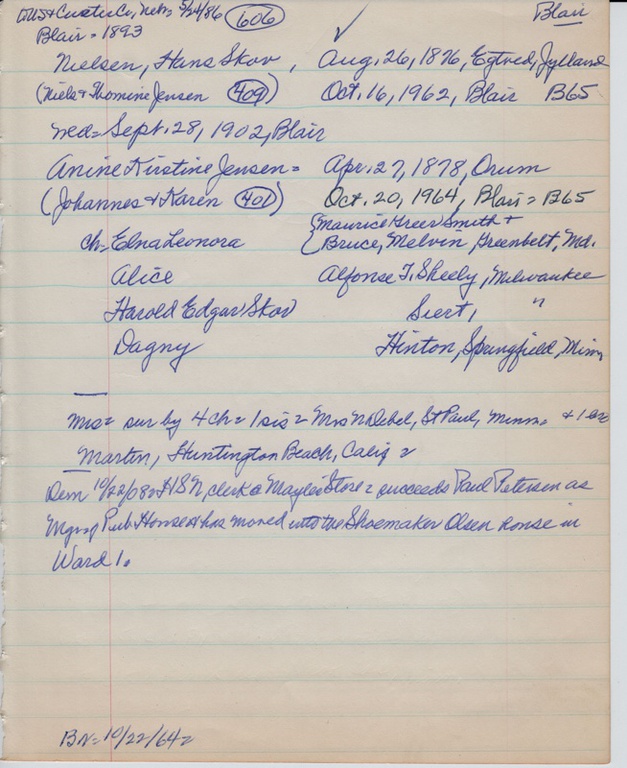 US & Custer Co, Nebr, 5/24/86 606 Blair
Blair = 1893
Nielsen, Hans Skov, Aug. 26, 1876, Egtved, Jylland
(Niels & Thomine Jensen 409) Oct. 16, 1962, Blair B65
md = Sept. 28, 1902, Blair
Anine Kirstine Jensen = Apr. 27, 1878, Orum
(Johannes & Karen 401) Oct. 20, 1964, Blair = B65
(Maurice Greer Smith +
ch = Edna Leonora (Bruce, Melvin, Greenbelt, Md.
Alice Alfonse T. Skeely, Milwaukee
Harold Edgar Skov Siert, "
Dagny Hinton, Springfield, Minn
Mrs = sur by 4 ch = 1 sis = Mrs N Debel, St Paul, Minn. & 1
Martin, Huntington Beach, Calif =
Dem 10/22/08 = HSN, clerk @ Store = succeeds Paul Petersen as
Mgr of Pub. House & has moved into the Shoemaker Olsen house in
Ward 1.
BN = 10/22/64 =